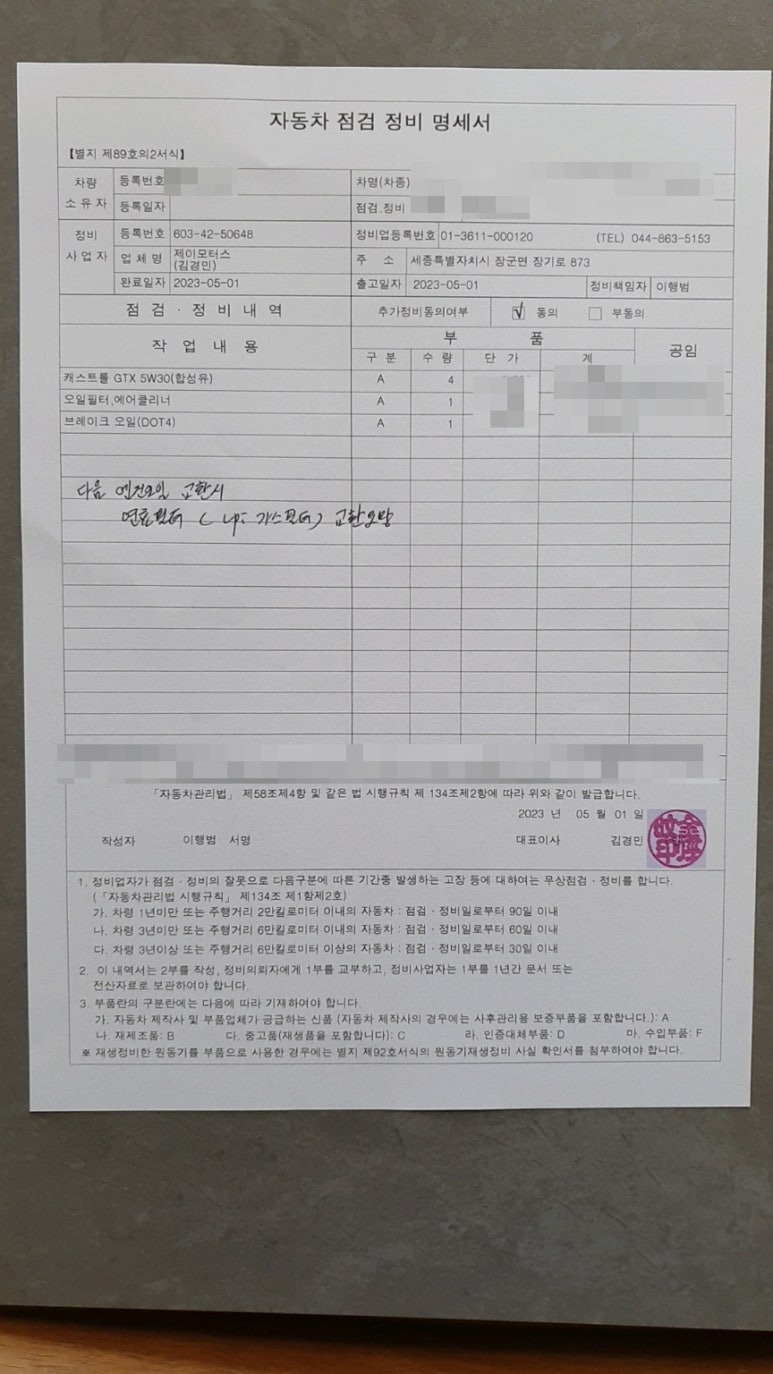 자동차 점검 정비 명세서
【별지 제89호의2서식】
차량 소유자 등록번호 차명(차종)
등록일자 점검.정비
정비 사업자 등록번호 603-42-50648 정비업등록번호 01-3611-000120 (TEL) 044-863-5153
업체명 제이모터스 (김경민) 주 소 세종특별자치시 장군면 장기로 873
완료일자 2023-05-01 출고일자 2023-05-01 정비책임자 이행범
점 검 · 정 비 내 역 추가정비동의여부 √ 동의 부동의
작 업 내 용 부 품 공임
구 분 수 량 단 가 계
캐스트롤 GTX 5W30(합성유) A 4
오일필터,에어클리너 A 1
브레이크 오일(DOT4) A 1
다음 엔진오일 교환시
연료필터 ( 가스필터) 교환요망
「자동차관리법」 제58조제4항 및 같은 법 시행규칙 제 134조제2항에 따라 위와 같이 발급합니다.
2023 년 05 월 01 일
작성자 이행범 서명 대표이사 김경민
1. 정비업자가 점검 · 정비의 잘못으로 다음구분에 따른 기간중 발생하는 고장 등에 대하여는 무상점검 · 정비를 합니다.
(「자동차관리법 시행규칙」 제134조 제1항제2호)
가. 차령 1년미만 또는 주행거리 2만킬로미터 이내의 자동차 : 점검 · 정비일로부터 90일 이내
나. 차령 3년미만 또는 주행거리 6만킬로미터 이내의 자동차 : 점검 · 정비일로부터 60일 이내
다. 차령 3년이상 또는 주행거리 6만킬로미터 이상의 자동차 : 점검 · 정비일로부터 30일 이내
2. 이 내역서는 2부를 작성, 정비의뢰자에게 1부를 교부하고, 정비사업자는 1부를 1년간 문서 또는
전산자료로 보관하여야 합니다.
3. 부품란의 구분란에는 다음에 따라 기재하여야 합니다.
가. 자동차 제작사 및 부품업체가 공급하는 신품 (자동차 제작사의 경우에는 사후관리용 보증부품을 포함합니다.): A
나. 재제조품: B 다. 중고품(재생품을 포함합니다): C 라. 인증대체부품: D 마. 수입부품: F
※ 재생정비한 원동기를 부품으로 사용한 경우에는 별지 제92호서식의 원동기재생정비 사실 확인서를 첨부하여야 합니다.